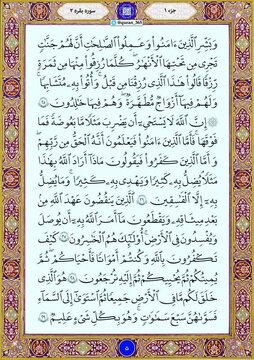 جزء ۱
@quran_365
سوره بقره ۲
وَبَشِّرِ الَّذِينَ ءَامَنُوا وَعَمِلُوا الصَّالِحَاتِ أَنَّ لَهُمْ جَنَّاتٍ
تَجْرِى مِن تَحْتِهَا الْأَنْهَارُ كُلَّمَا رُزِقُوا مِنْهَا مِن ثَمَرَةٍ
رِّزْقًا قَالُوا هَٰذَا الَّذِى رُزِقْنَا مِن قَبْلُ وَأُتُوا بِهِ مُتَشَابِهًا
وَلَهُمْ فِيهَا أَزْوَاجٌ مُّطَهَّرَةٌ وَهُمْ فِيهَا خَالِدُونَ ﴿٢٥﴾
إِنَّ اللَّهَ لَا يَسْتَحْىِ أَن يَضْرِبَ مَثَلًا مَّا بَعُوضَةً فَمَا
فَوْقَهَا فَأَمَّا الَّذِينَ ءَامَنُوا فَيَعْلَمُونَ أَنَّهُ الْحَقُّ مِن رَّبِّهِمْ
وَأَمَّا الَّذِينَ كَفَرُوا فَيَقُولُونَ مَاذَا أَرَادَ اللَّهُ بِهَٰذَا
مَثَلًا يُضِلُّ بِهِ كَثِيرًا وَيَهْدِى بِهِ كَثِيرًا وَمَا يُضِلُّ
بِهِ إِلَّا الْفَاسِقِينَ ﴿٢٦﴾ الَّذِينَ يَنقُضُونَ عَهْدَ اللَّهِ مِن
بَعْدِ مِيثَاقِهِ وَيَقْطَعُونَ مَا أَمَرَ اللَّهُ بِهِ أَن يُوصَلَ
وَيُفْسِدُونَ فِى الْأَرْضِ أُولَٰئِكَ هُمُ الْخَاسِرُونَ ﴿٢٧﴾ كَيْفَ
تَكْفُرُونَ بِاللَّهِ وَكُنتُمْ أَمْوَاتًا فَأَحْيَاكُمْ ثُمَّ
يُمِيتُكُمْ ثُمَّ يُحْيِيكُمْ ثُمَّ إِلَيْهِ تُرْجَعُونَ ﴿٢٨﴾ هُوَ الَّذِى
خَلَقَ لَكُم مَّا فِى الْأَرْضِ جَمِيعًا ثُمَّ اسْتَوَىٰ إِلَى السَّمَاءِ
فَسَوَّاهُنَّ سَبْعَ سَمَاوَاتٍ وَهُوَ بِكُلِّ شَىْءٍ عَلِيمٌ ﴿٢٩﴾
۵